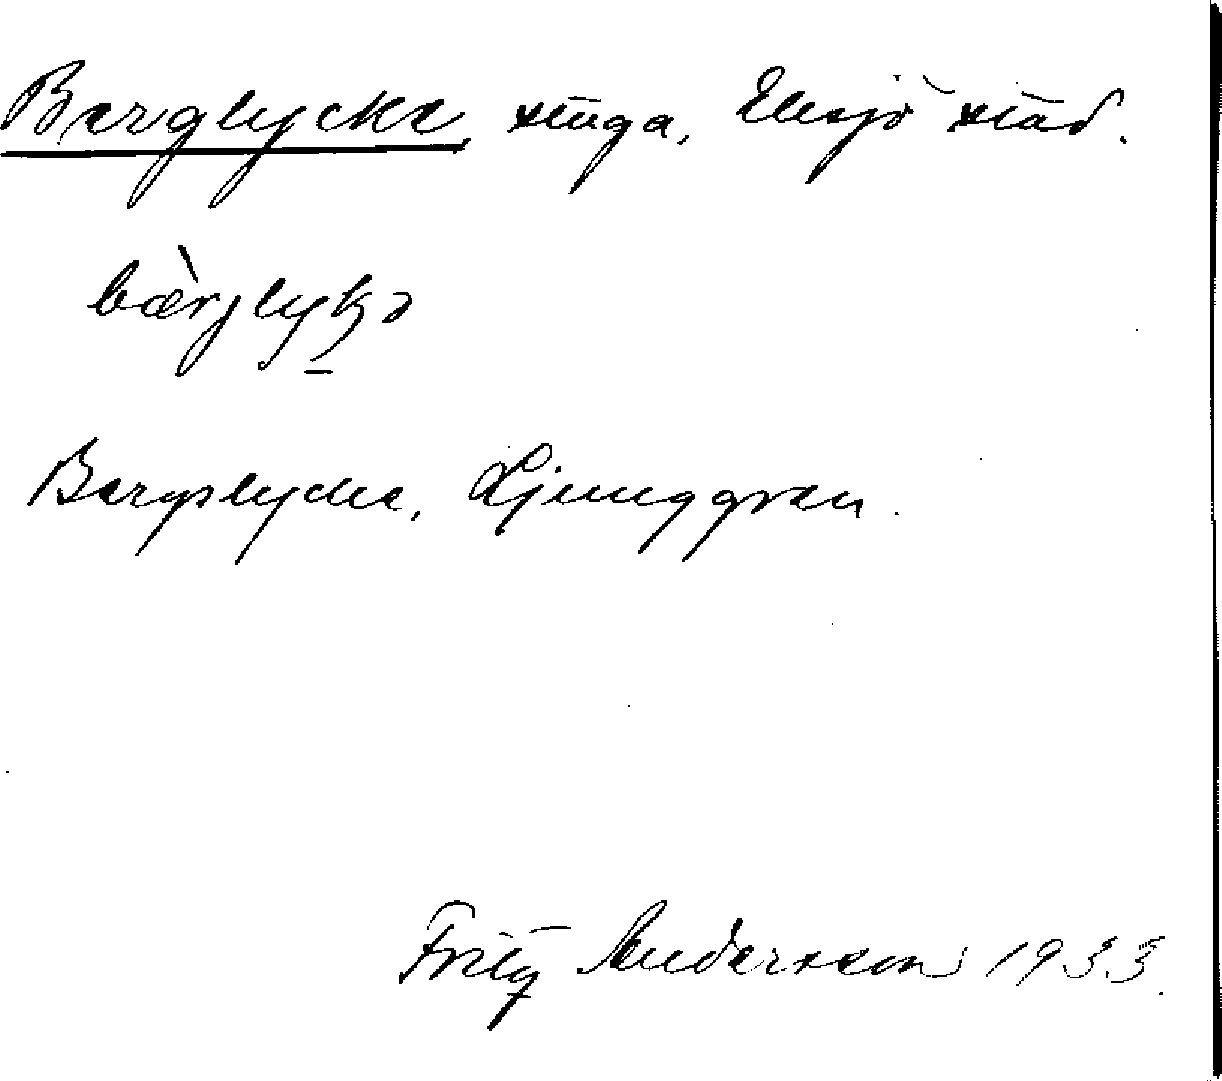 Berglycke, stuga, Eksjö stad.
bæ̀rjlykə
Bergslycke, Ljunggren.
Fritz Andersson 1933.